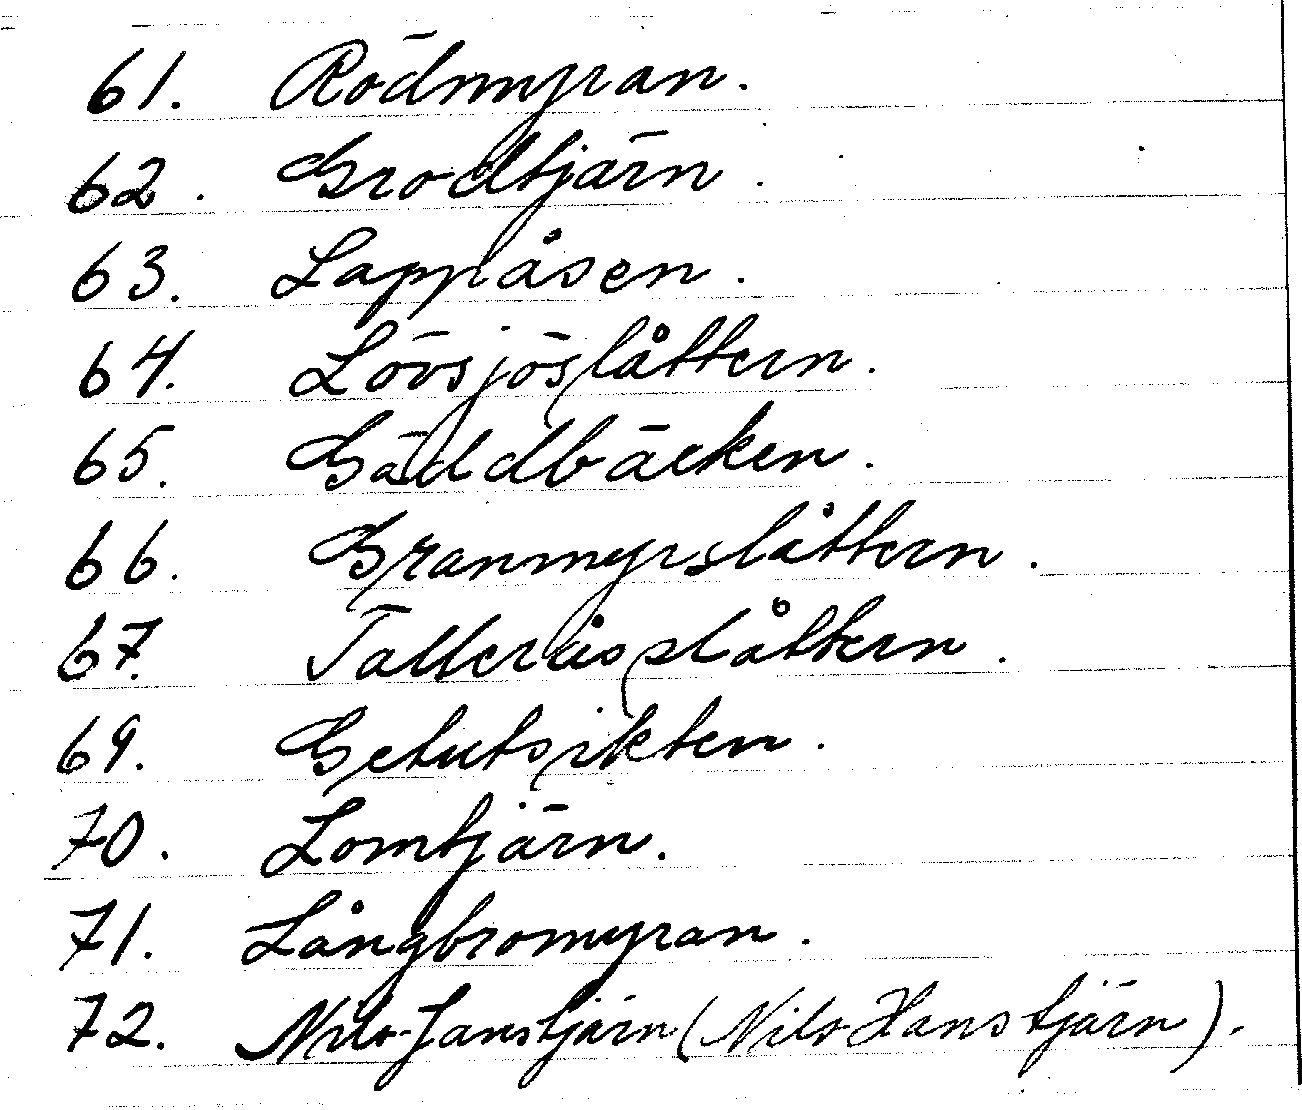 61. Rödmyran.
62. Grodtjärn.
63. Lappåsen.
64. Lövsjöslåttern.
65. Gäddbäcken.
66. Granmyrslåttern.
67. Talleråsslåttern.
69. Getutsikten.
70. Lomtjärn.
71. Långbromyran.
72. Nils-Janstjärn (Nils Hanstjärn).